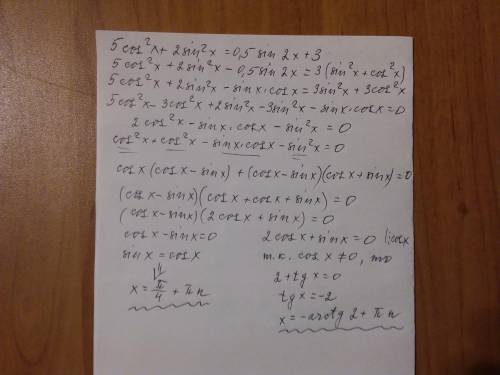 5 cos²x + 2 sin²x = 0,5 sin 2x + 3
5 cos²x + 2 sin²x − 0,5 sin 2x = 3 (sin²x + cos²x)
5 cos²x + 2 sin²x − sin x · cos x = 3 sin²x + 3 cos²x
5 cos²x − 3 cos²x + 2 sin²x − 3 sin²x − sin x · cos x = 0
2 cos²x − sin x · cos x − sin²x = 0
cos²x + cos²x − sin x · cos x − sin²x = 0
cos x (cos x − sin x) + (cos x − sin x)(cos x + sin x) = 0
(cos x − sin x)(cos x + cos x + sin x) = 0
(cos x − sin x)(2 cos x + sin x) = 0
cos x − sin x = 0
sin x = cos x
⇓
x = π/4 + πn
2 cos x + sin x = 0 |:cos x
т.к. cos x ≠ 0, то
2 + tg x = 0
tg x = −2
x = −arctg 2 + πn